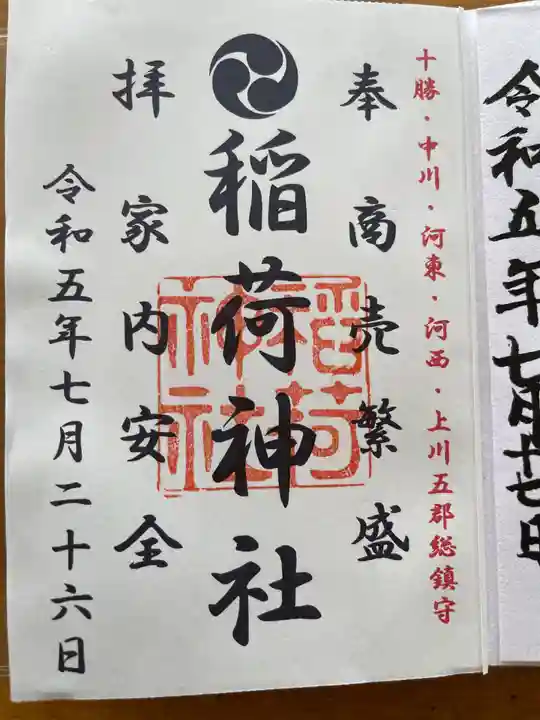 令和五年七月十七日
十勝・中川・河東・河西・上川五郡総鎮守
奉商売繁盛
稲荷神社
稲荷神社
拝家内安全
令和五年七月二十六日